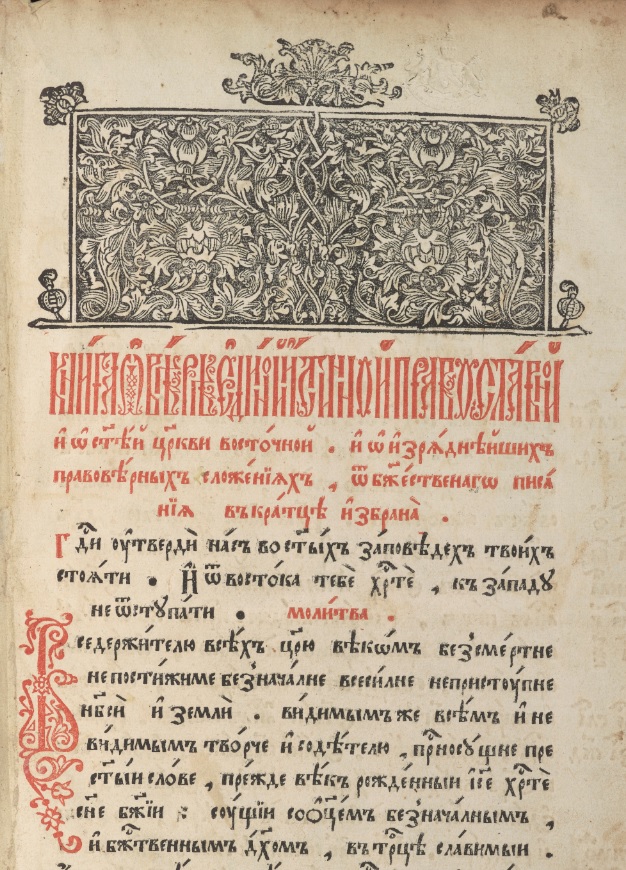 КНИ́ГА Ѡ҆ ВѢ́РѢ Є҆ДИ́НОЙ И҆́СТИННОЙ ПРАВОСЛА́ВНОЙ
и҆ ѡ҆ ст҃ѣ́й цр҃кви восто́чной . и҆ ѡ҆ и҆зрѧ́днѣйшихъ
правовѣ́рныхъ сложе́нїѧхъ , ѿ бж҃е́ственагѡ писа́
нїѧ въкра́тцѣ и҆збрана̀ .
Гдⷭ҇и ᲂу҆твердѝ на́съ во ст҃ы́хъ за́повѣдехъ твои́хъ
стоѧ́ти . И҆ ѿ восто́ка тебѐ хрⷭ҇тѐ , къ за́паду
не ѿступа́ти . моли́тва .
Вседержи́телю всѣ́хъ цр҃ю̀ вѣкѡ́мъ безсме́ртне
непости́жиме безнача́лне всеси́лне непристꙋ́пне
нб҃сѝ и҆ землѝ . ви́димымъ же всѣ́мъ и҆ не
ви́димымъ тво́рче и҆ содѣ́телю , прⷭ҇носꙋ́щне пре
ст҃ы́и сло́ве , пре́жде вѣ́къ рожде́нныи і҆с҃е хрⷭ҇тѐ
сн҃е бж҃їи : со́ущїи со ѻ҆ц҃е́мъ безнача́лнымъ ,
и҆ бжⷭ҇твеннымъ дх҃омъ , въ трⷪ҇цѣ сла́вимыи .